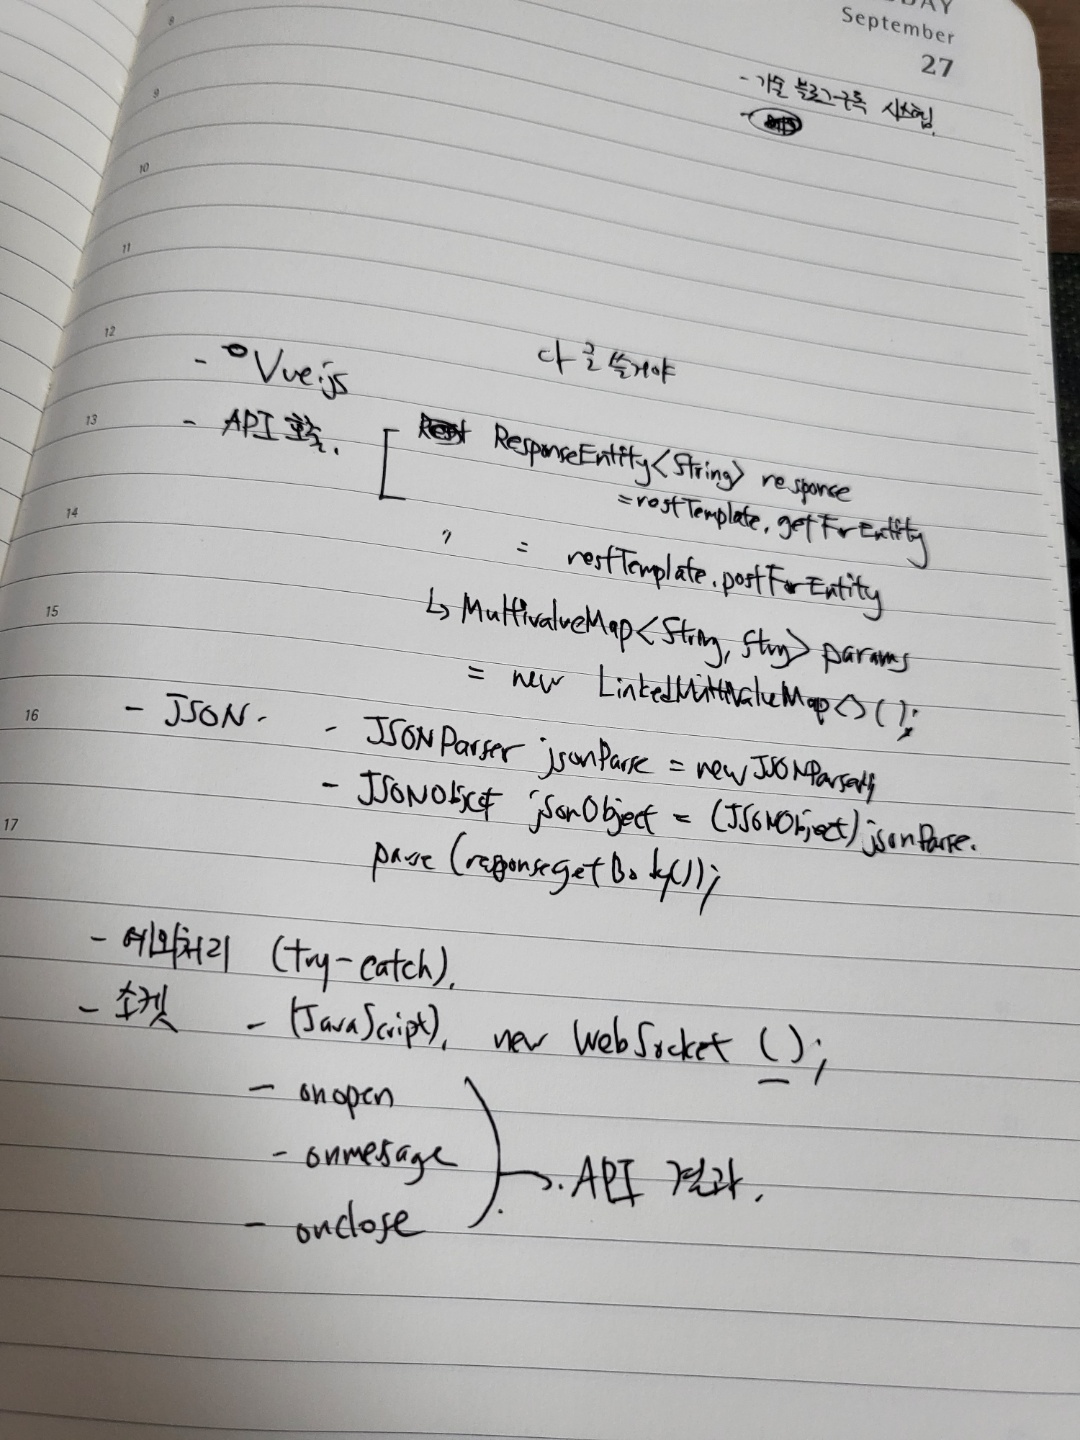 DAY
September
27
- 기술 블로그 구독 시스템.
8
9
10
11
12
- Vue.js
다 글 쓸거야
13
- API 호출.
ResponseEntity<String> response
= restTemplate.getForEntity
14
" = restTemplate.postForEntity
15
↳ MultivalueMap<String, String> params
= new LinkedMultiValueMap<>();
16
- JSON. - JSONParser jsonParse = new JSONParser();
- JSONObject jsonObject = (JSONObject) jsonParse.
17
parse (response.getBody());
- 예외처리 (try-catch).
- 소켓 - (JavaScript). new WebSocket ( );
- onopen
- onmesage
API 결과.
- onclose